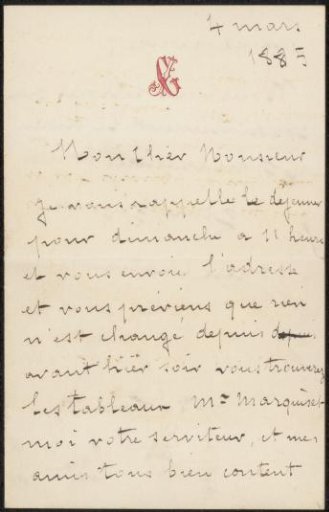 4 mars
188
Mon Cher Monsieur
je vous rappelle le dejeuner
pour dimanche a 11 heures
et vous envoie l'adresse
et vous préviens que rien
n'est changé depuis
avant hier soir vous trouverez
les tableaux Mr Marquiset
moi votre serviteur, et mes
amis tous bien content